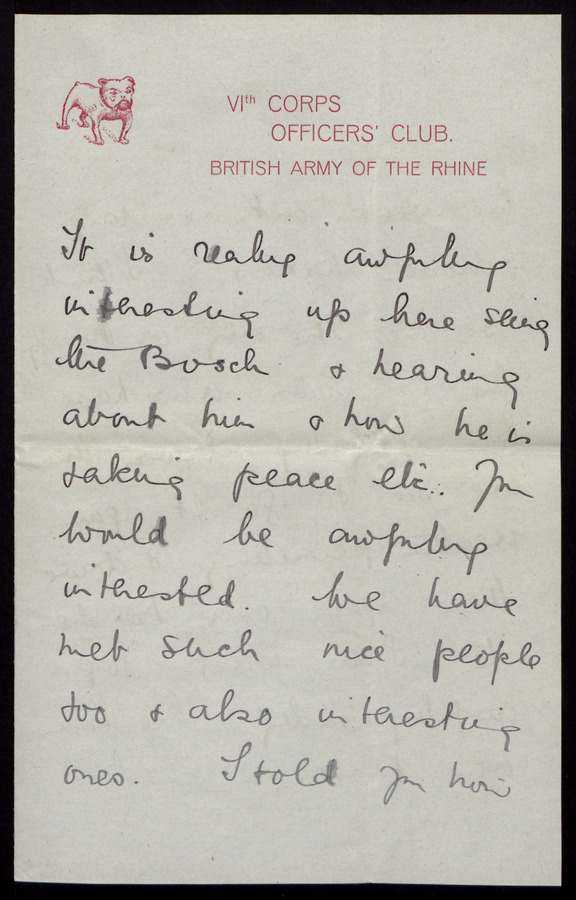 VIth CORPS
OFFICERS' CLUB.
BRITISH ARMY OF THE RHINE
It is really awfully
interesting up here seeing
the Bosch & hearing
about him & how he is
taking peace etc.. You
would be awfully
interested. We have
met such nice people
too & also interesting
ones. I told you how